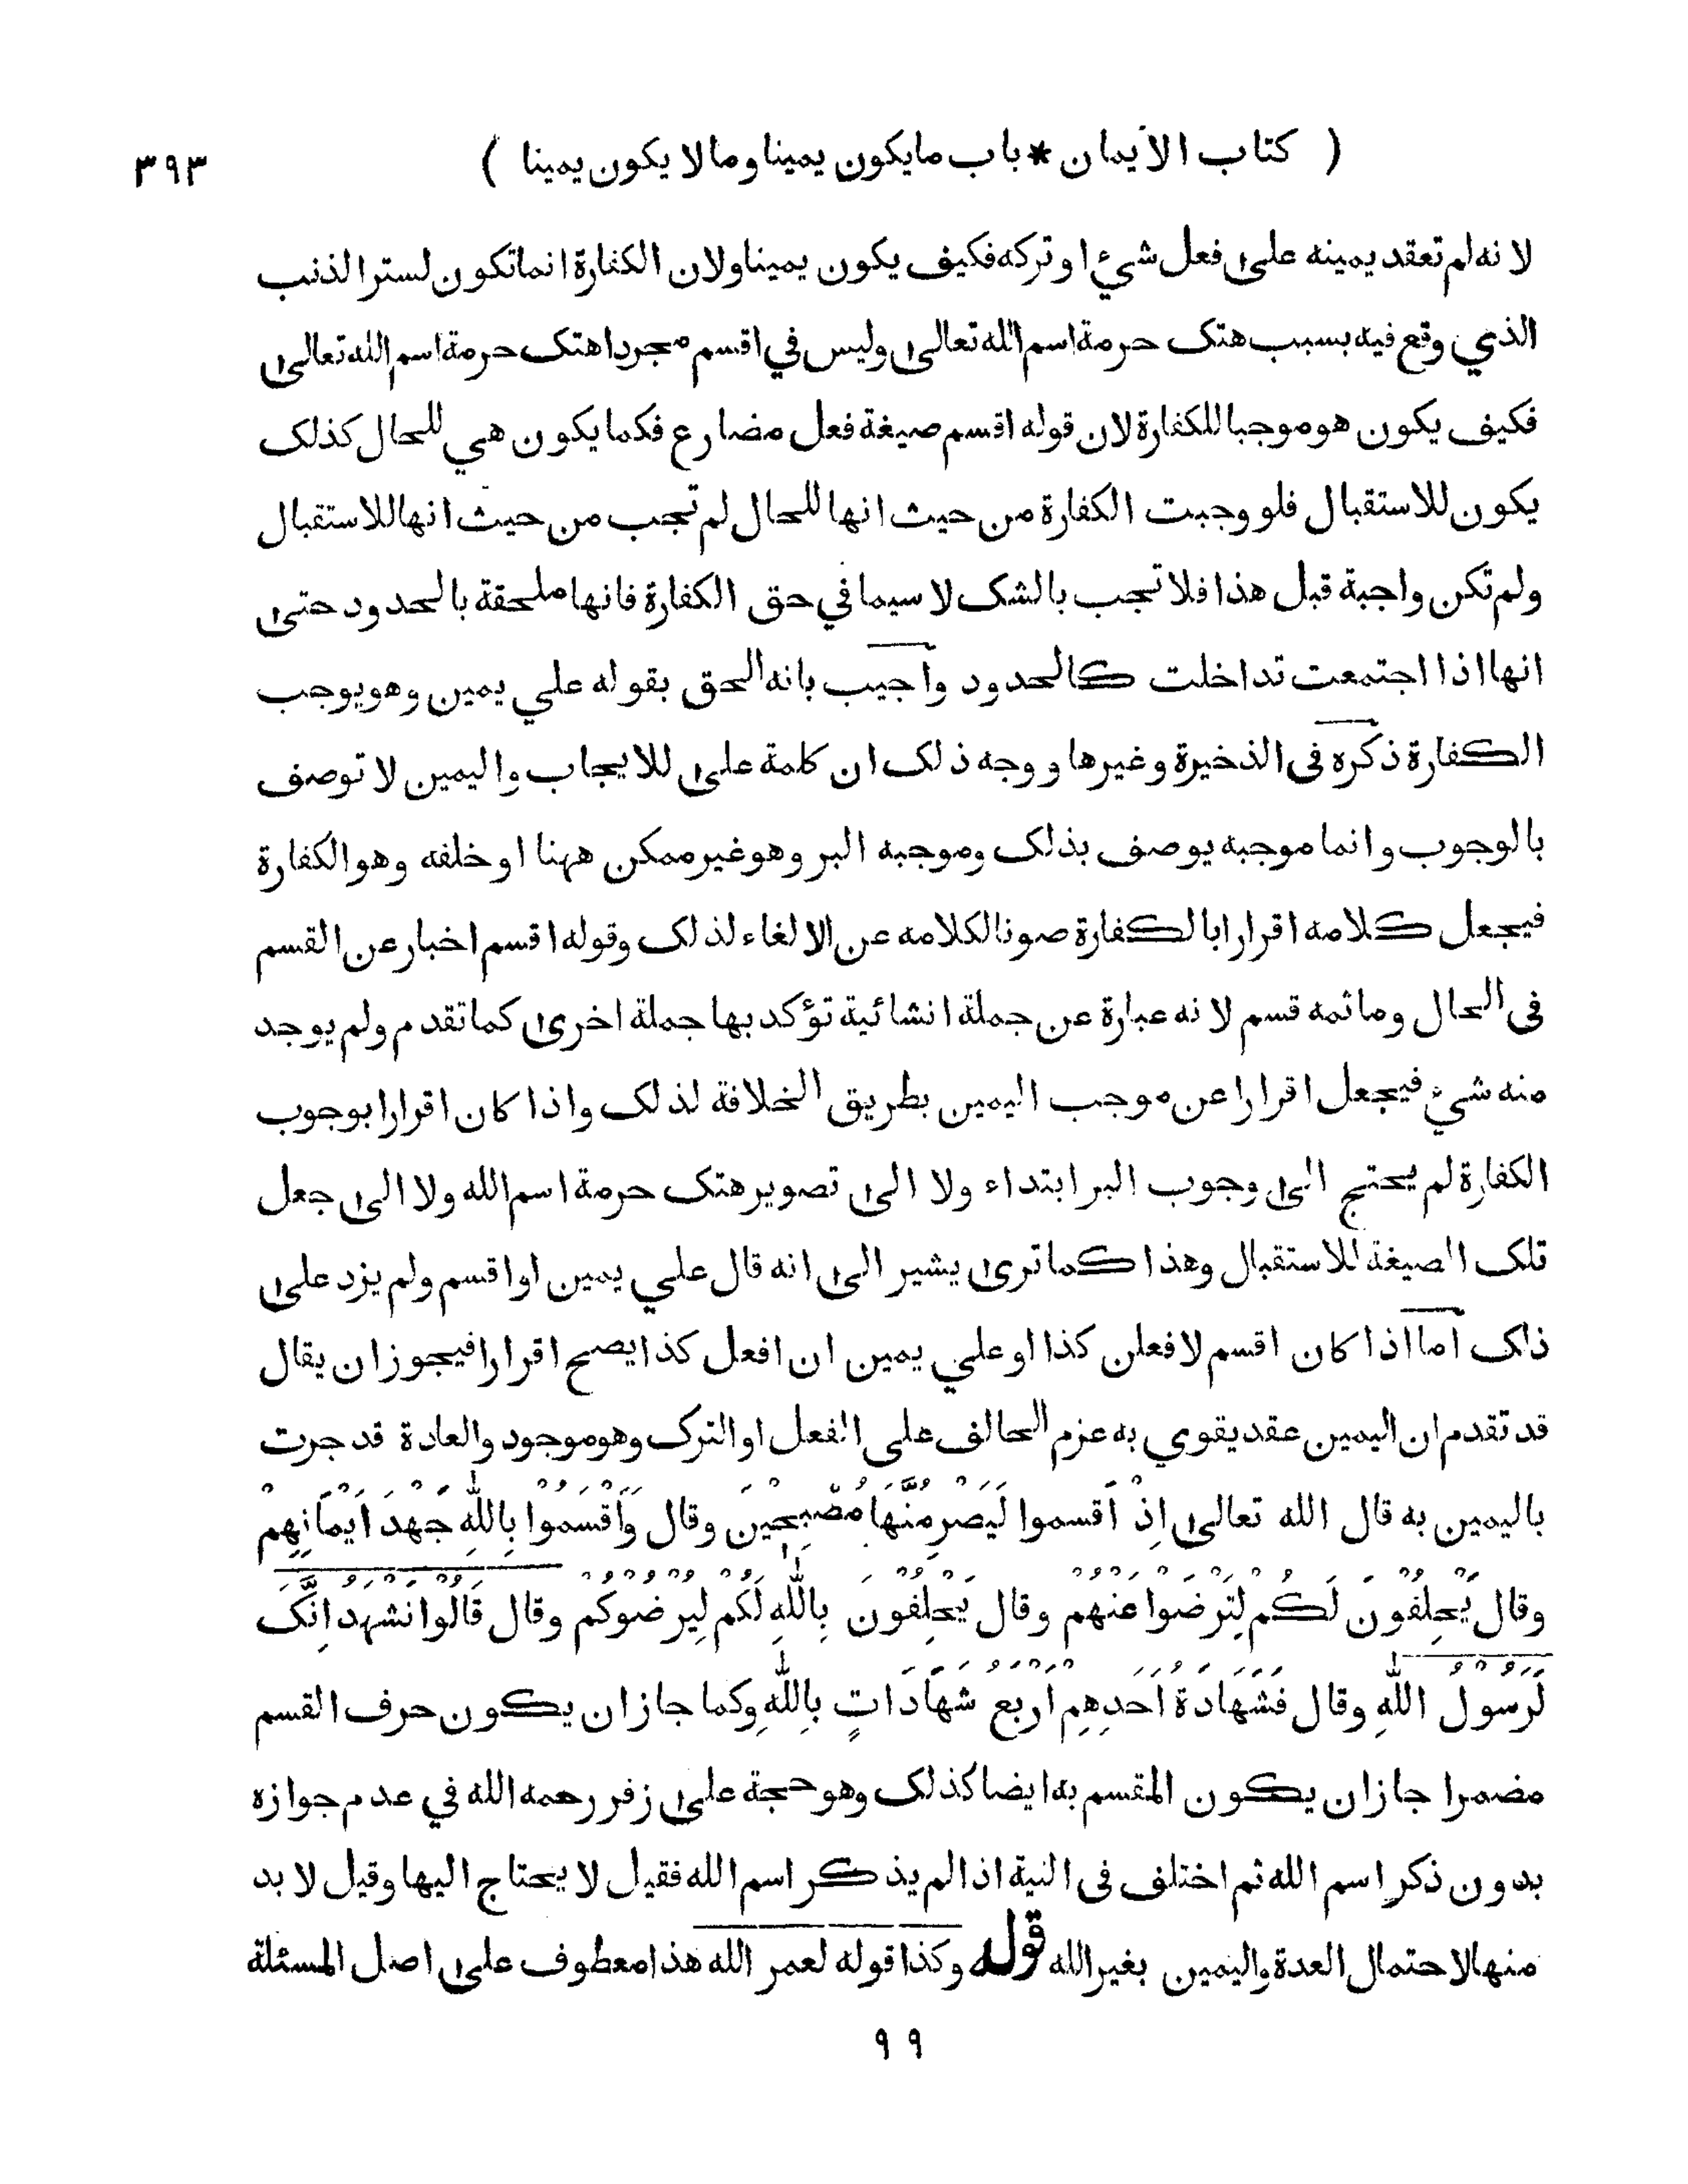 ( كتاب الأيمان * باب مايكون يمينا وما لا يكون يمينا )
٣٩٣
لانه لم تعقد يمينه على فعل شيء او تركه فكيف يكون يمينا ولان الكفارة انما تكون لستر الذنب
الذي وقع فيه بسبب هتك حرمة اسم الله تعالى وليس في اقسم مجردا هتك حرمة اسم الله تعالى
فكيف يكون هو موجبا للكفارة لان قوله اقسم صيغة فعل مضارع فكما يكون هي للحال كذلك
يكون للاستقبال فلو وجبت الكفارة من حيث انها للحال لم تجب من حيث انها للاستقبال
ولم تكن واجبة قبل هذا فلا تجب بالشك لا سيما في حق الكفارة فانها ملحقة بالحدود حتى
انها اذا اجتمعت تداخلت كالحدود واجيب بانه الحق بقوله علي يمين وهو يوجب
الكفارة ذكره فى الذخيرة وغيرها ووجه ذلك ان كلمة على للايجاب واليمين لا توصف
بالوجوب وانما موجبه يوصف بذلك وموجبه البر وهو غير ممكن ههنا او خلفه وهو الكفارة
فيجعل كلامه اقرارا بالكفارة صونا لكلامه عن الالغاء لذلك وقوله اقسم اخبار عن القسم
فى الحال وما ثمه قسم لانه عبارة عن جملة انشائية تؤكد بها جملة اخرى كما تقدم ولم يوجد
منه شيء فيجعل اقرارا عن موجب اليمين بطريق الخلافة لذلك واذا كان اقرارا بوجوب
الكفارة لم يحتج الى وجوب البر ابتداء ولا الى تصوير هتك حرمة اسم الله ولا الى جعل
تلك الصيغة للاستقبال وهذا كما ترى يشير الى انه قال علي يمين او اقسم ولم يزد على
ذلك اما اذا كان اقسم لافعلن كذا او علي يمين ان افعل كذا يصح اقرارا فيجوز ان يقال
قد تقدم ان اليمين عقد يقوي به عزم الحالف على الفعل او الترك وهو موجود والعادة قد جرت
باليمين به قال الله تعالى اِذْ اَقسموا لَيَصْرِمُنَّهَا مُصْبِحِيْنَ وقال وَاَقْسَمُوْا بِاللّٰهِ جَهْدَ اَيْمَانِهِمْ
وقال يَحْلِفُوْنَ لَكُمْ لِتَرْضَوْا عَنْهُمْ وقال يَحْلِفُوْنَ بِاللّٰهِ لَكُمْ لِيُرْضُوْكُمْ وقال قَالُوْا نَشْهَدُ اِنَّكَ
لَرَسُوْلُ اللّٰهِ وقال فَشَهَادَةُ اَحَدِهِمْ اَرْبَعُ شَهَادَاتٍ بِاللّٰهِ وكما جاز ان يكون حرف القسم
مضمرا جاز ان يكون المقسم به ايضا كذلك وهو حجة على زفر رحمه الله في عدم جوازه
بدون ذكر اسم الله ثم اختلف فى النية اذا لم يذكر اسم الله فقيل لا يحتاج اليها وقيل لا بد
منها لاحتمال العدة واليمين بغير الله قوله وكذا قوله لعمر الله هذا معطوف على اصل المسئلة
٩٩